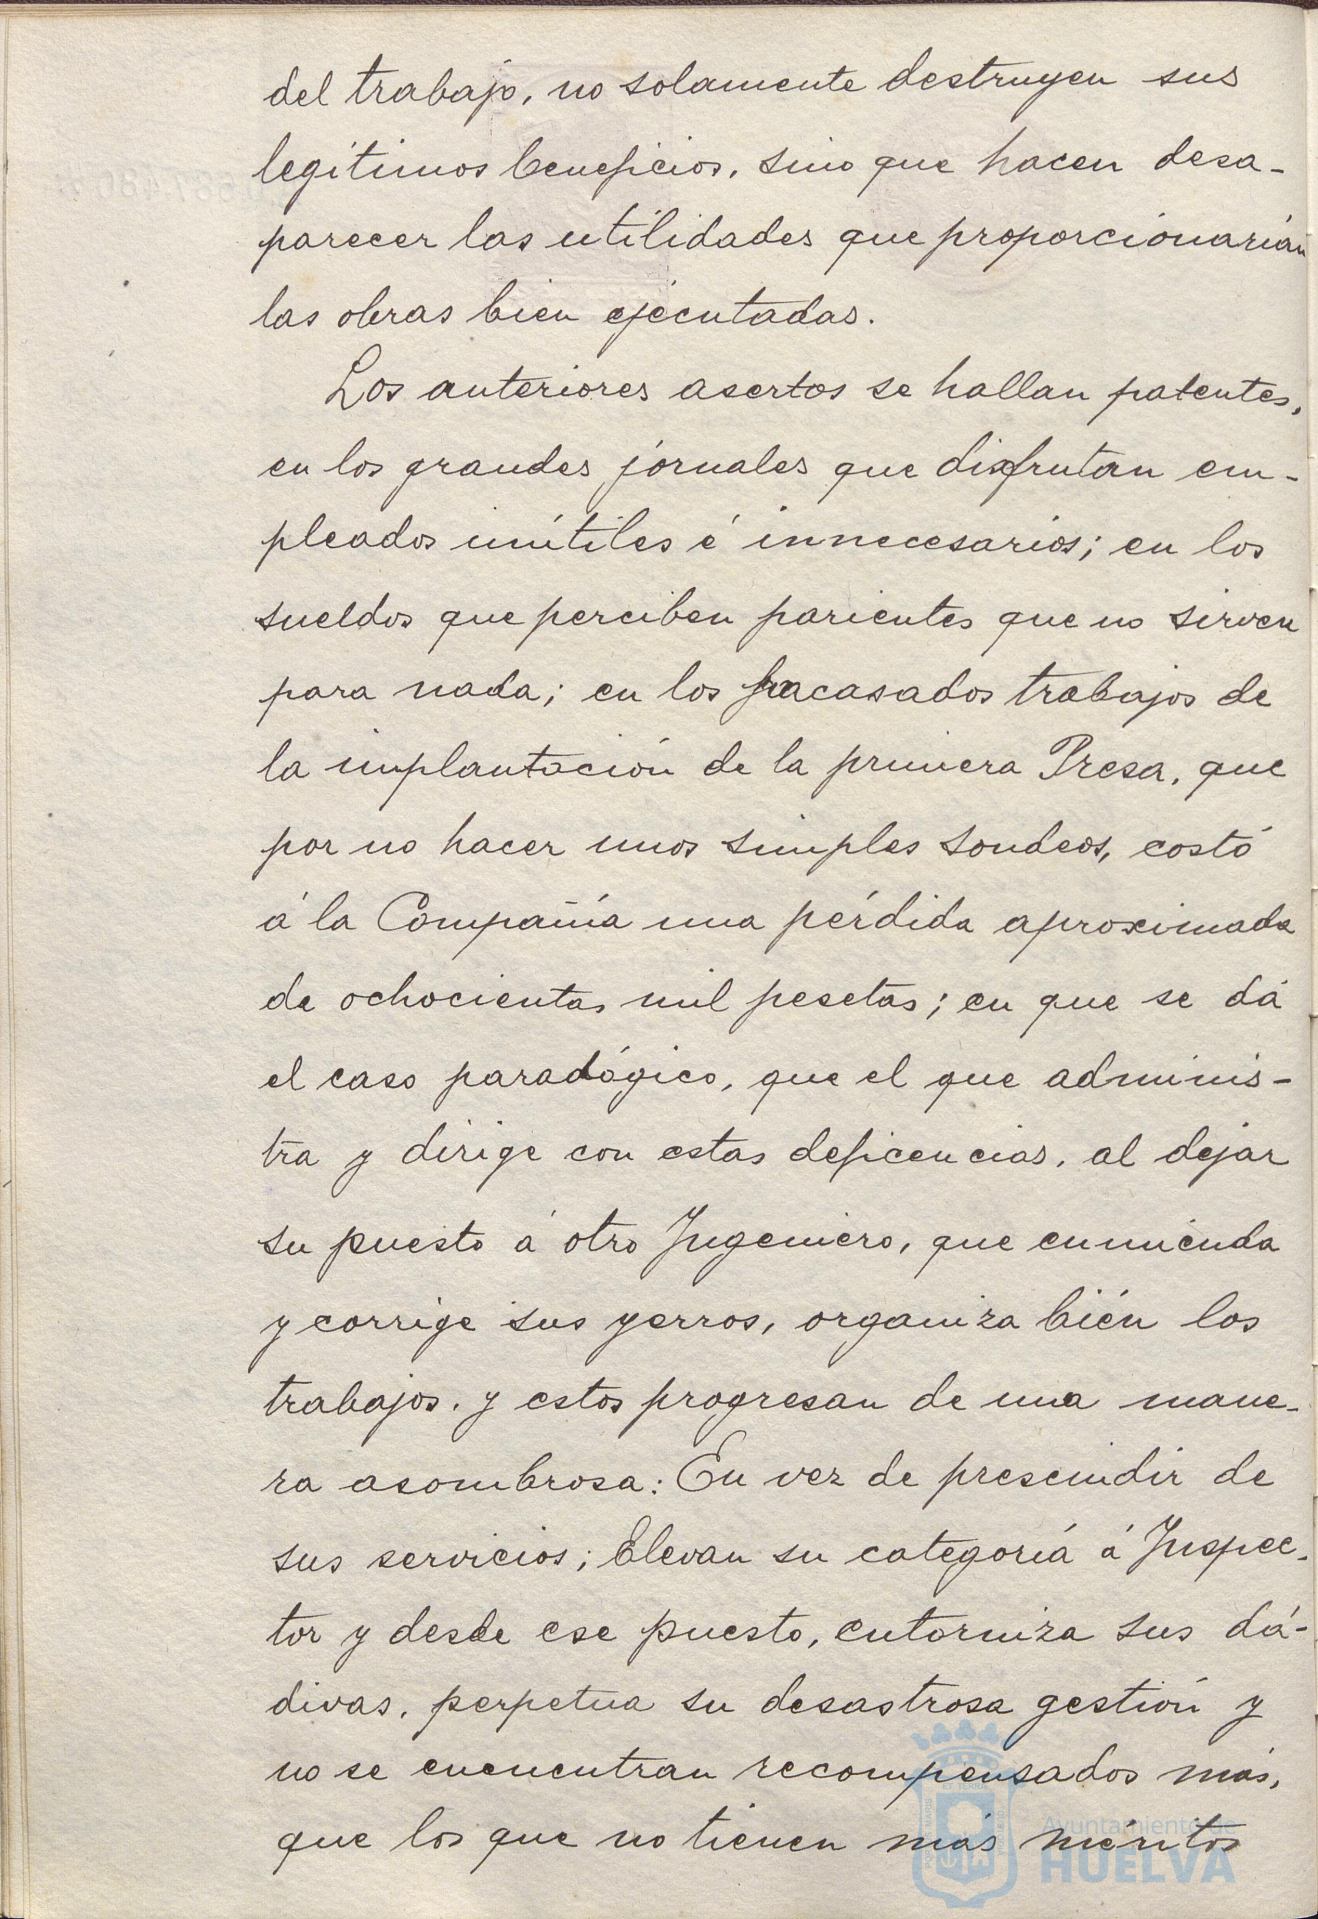 del trabajo, no solamente destruyen sus
legítimos beneficios, sino que hacen desa-
parecer las utilidades que proporcionarían
las obras bien ejecutadas.
Los anteriores asertos se hallan patentes,
en los grandes jornales que disfrutan em-
pleados inútiles é innecesarios; en los
sueldos que perciben parientes que no sirven
para nada; en los fracasados trabajos de
la implantación de la primera Presa, que
por no hacer unos simples sondeos, costó
á la Compañía una pérdida aproximada
de ochocientas mil pesetas; en que se dá
el caso paradógico, que el que adminis-
tra y dirige con estas deficencias, al dejar
su puesto á otro Ingeniero, que enmienda
y corrige sus yerros, organiza bién los
trabajos, y estos progresan de una mane-
ra asombrosa: En vez de prescindir de
sus servicios; Elevan su categoriá á Inspec-
tor y desde ese puesto, entorniza sus dá-
divas, perpetua su desastrosa gestión y
no se encuentran recompensados más,
que los que no tienen más méritos
Ayuntamiento de
HUELVA